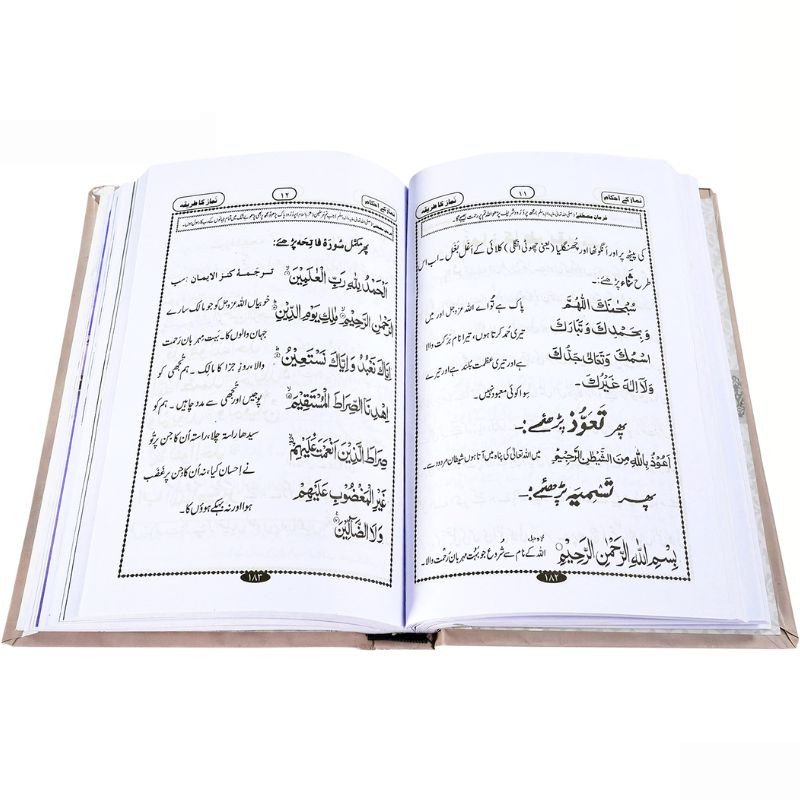 نماز کے احکام
۱۱
نماز کا طریقہ
فرمانِ مصطفیٰ
کی پیٹھ پر اور انگوٹھا اور چھنگلیا (یعنی چھوٹی انگلی) کلائی کے اَغَل بَغَل ۔ اب اس
طرح ثناء پڑھئے:
سُبْحٰنَكَ اللّٰهُمَّ
وَبِحَمْدِكَ وَتَبَارَكَ
اسْمُكَ وَتَعَالٰى جَدُّكَ
وَلَا اِلٰهَ غَيْرُكَ۔
پاک ہے تُو اے اللہ عزوجل اور میں
تیری حمد کرتا ہوں، تیرا نام برکت والا
ہے اور تیری عظمت بلند ہے اور تیرے
سوا کوئی معبود نہیں۔
پھر تَعَوُّذ پڑھئے:۔
اَعُوْذُ بِاللّٰهِ مِنَ الشَّيْطٰنِ الرَّجِيْمِ
میں اللہ تعالیٰ کی پناہ میں آتا ہوں شیطان مردود سے۔
پھر تَسْمِیَہ پڑھئے:۔
بِسْمِ اللّٰهِ الرَّحْمٰنِ الرَّحِيْمِ
اللہ کے نام سے شروع جو بہت مہربان رَحمت والا۔
۱۸۲
۱۲
نماز کا طریقہ
پھر مکمّل سُورۂ فاتحہ پڑھئے:
اَلْحَمْدُ لِلّٰهِ رَبِّ الْعٰلَمِيْنَ ۙ
الرَّحْمٰنِ الرَّحِيْمِ ۙ مٰلِكِ يَوْمِ الدِّيْنِ ؕ
اِيَّاكَ نَعْبُدُ وَاِيَّاكَ نَسْتَعِيْنُ ؕ
اِهْدِنَا الصِّرَاطَ الْمُسْتَقِيْمَ ۙ
صِرَاطَ الَّذِيْنَ اَنْعَمْتَ عَلَيْهِمْ
غَيْرِ الْمَغْضُوْبِ عَلَيْهِمْ
وَلَا الضَّآلِّيْنَ
ترجمۂ کنز الایمان :سب
خوبیاں اللہ عزوجل کو جو مالک سارے
جہان والوں کا۔ بہت مہربان رَحمت
والا، روزِ جزا کا مالک ۔ ہم تجھی کو
پوجیں اور تجھی سے مدد چاہیں ۔ ہم کو
سیدھا راستہ چلا، راستہ اُن کا جن پر تُو
نے اِحسان کیا، نہ اُن کا جن پر غضب
ہوا اور نہ بہکے ہوؤں کا۔
۱۸۳